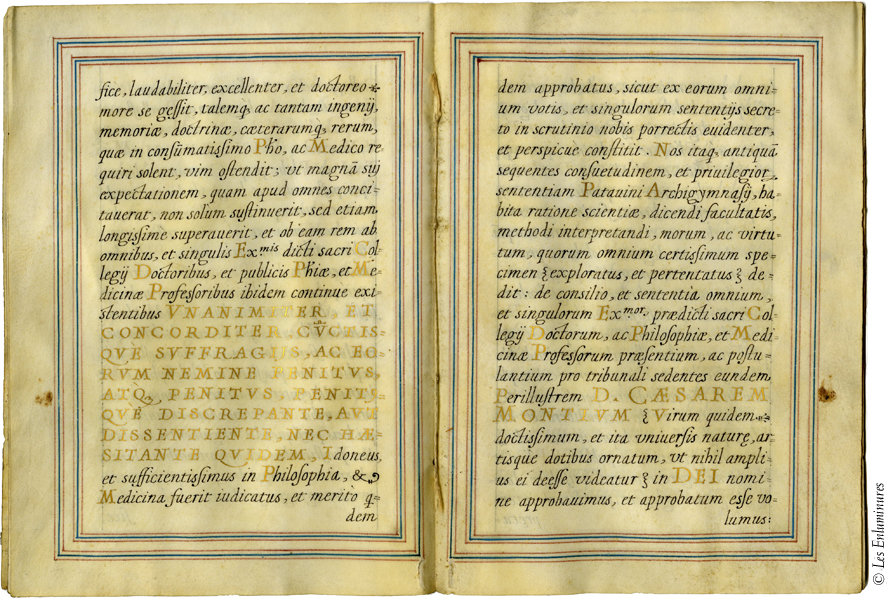 fice, laudabiliter, excellenter, et doctoreo
more se gessit, talemq, ac tantam ingenij,
memoriæ, doctrinæ, cæterarumq, rerum,
quæ in consũmatissimo Pho, ac Medico re
quiri solent, vim ostendit; vt magnã suj
expectationem, quam apud omnes conci-
tauerat, non solum sustinuerit, sed etiam
longissime superauerit, et ob eam rem ab
omnibus, et singulis Exmis dicti sacri Col-
legij Doctoribus, et publicis Phiæ, et Me-
dicinæ Professoribus ibidem continue exi-
stentibus VNANIMITER, ET
CONCORDITER, CṼCTIS-
QVE SVFFRAGIJS, AC EO-
RVM NEMINE PENITVS,
ATQ, PENITVS, PENITS-
QVE DISCREPANTE, AVT
DISSENTIENTE, NEC HÆ-
SITANTE QVIDEM, Idoneus
et sufficientissimus in Philosophia, &
Medicina fuerit iudicatus, et merito q-
dem
dem approbatus, sicut ex eorum omni-
um votis, et singulorum sententijs secre-
to in scrutinio nobis porrectis euidenter,
et perspicue constitit. Nos itaq, antiquã
sequentes consuetudinem, et priuilegior,
sententiam Patauini Archigymnasij, ha-
bita ratione scientiæ, dicendi facultatis,
methodi interpretandi, morum, ac virtu-
tum, quorum omnium certissimum spe-
cimen exploratus, et pertentatus de-
dit: de consilio, et sententia omnium,
et singulorum Exmor, prædicti sacri Col-
legij Doctorum, ac Philosophiæ, et Medi-
cinæ Professorum præsentium, ac postu-
lantium pro tribunali sedentes eundem
Perillustrem D. CÆSAREM
MONTIVM Virum quidem
doctissimum, et ita vniuersis naturę, ar-
tisque dotibus ornatum, vt nihil ampli-
us ei deesse videatur in DEI nomi-
ne approbauimus, et approbatum esse vo-
lumus:
© Les Enluminures